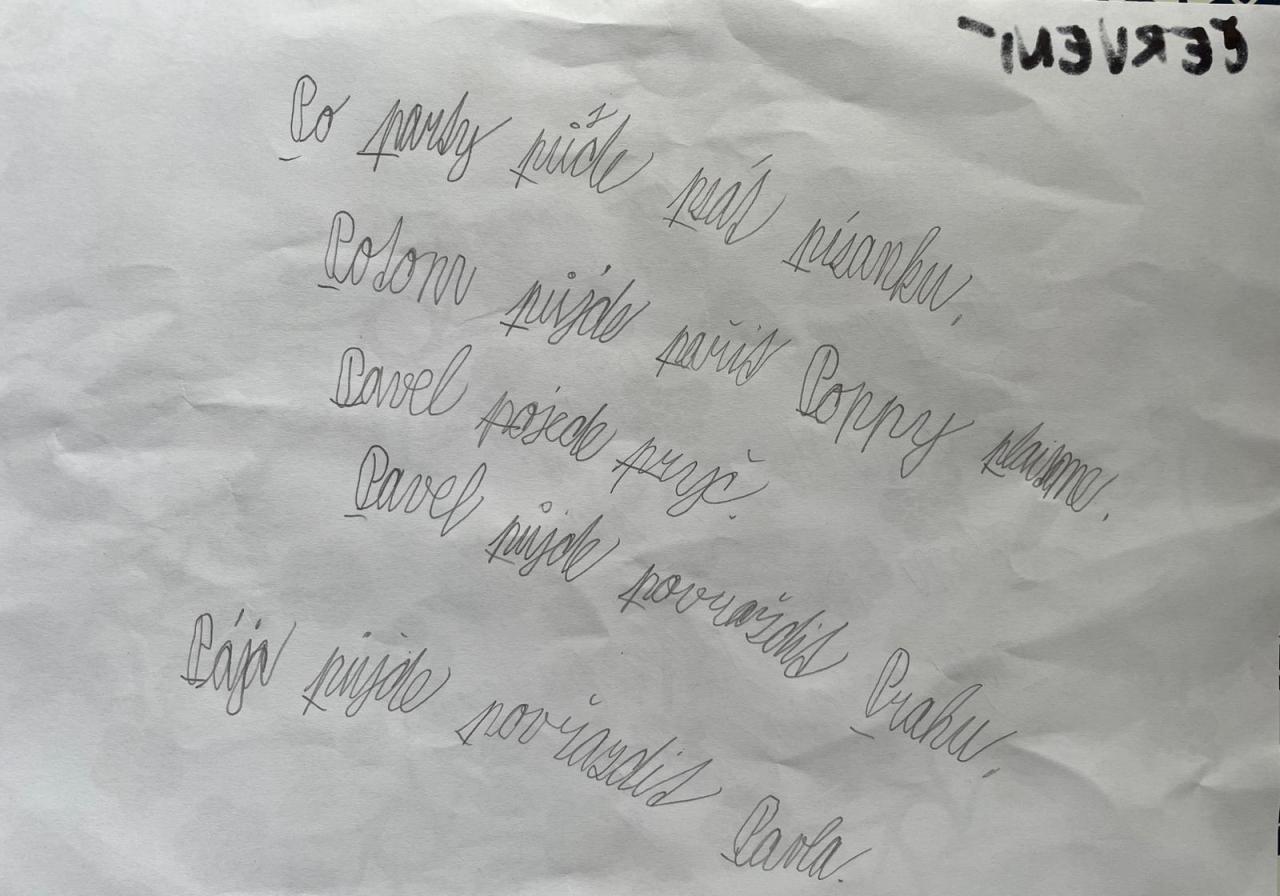 ČERVENÍ
Po party půjde psát písanku.
Potom půjde pařit Poppy playtime.
Pavel pojede pryč.
Pavel půjde povraždit Prahu.
Pája půjde povraždit Pavla.